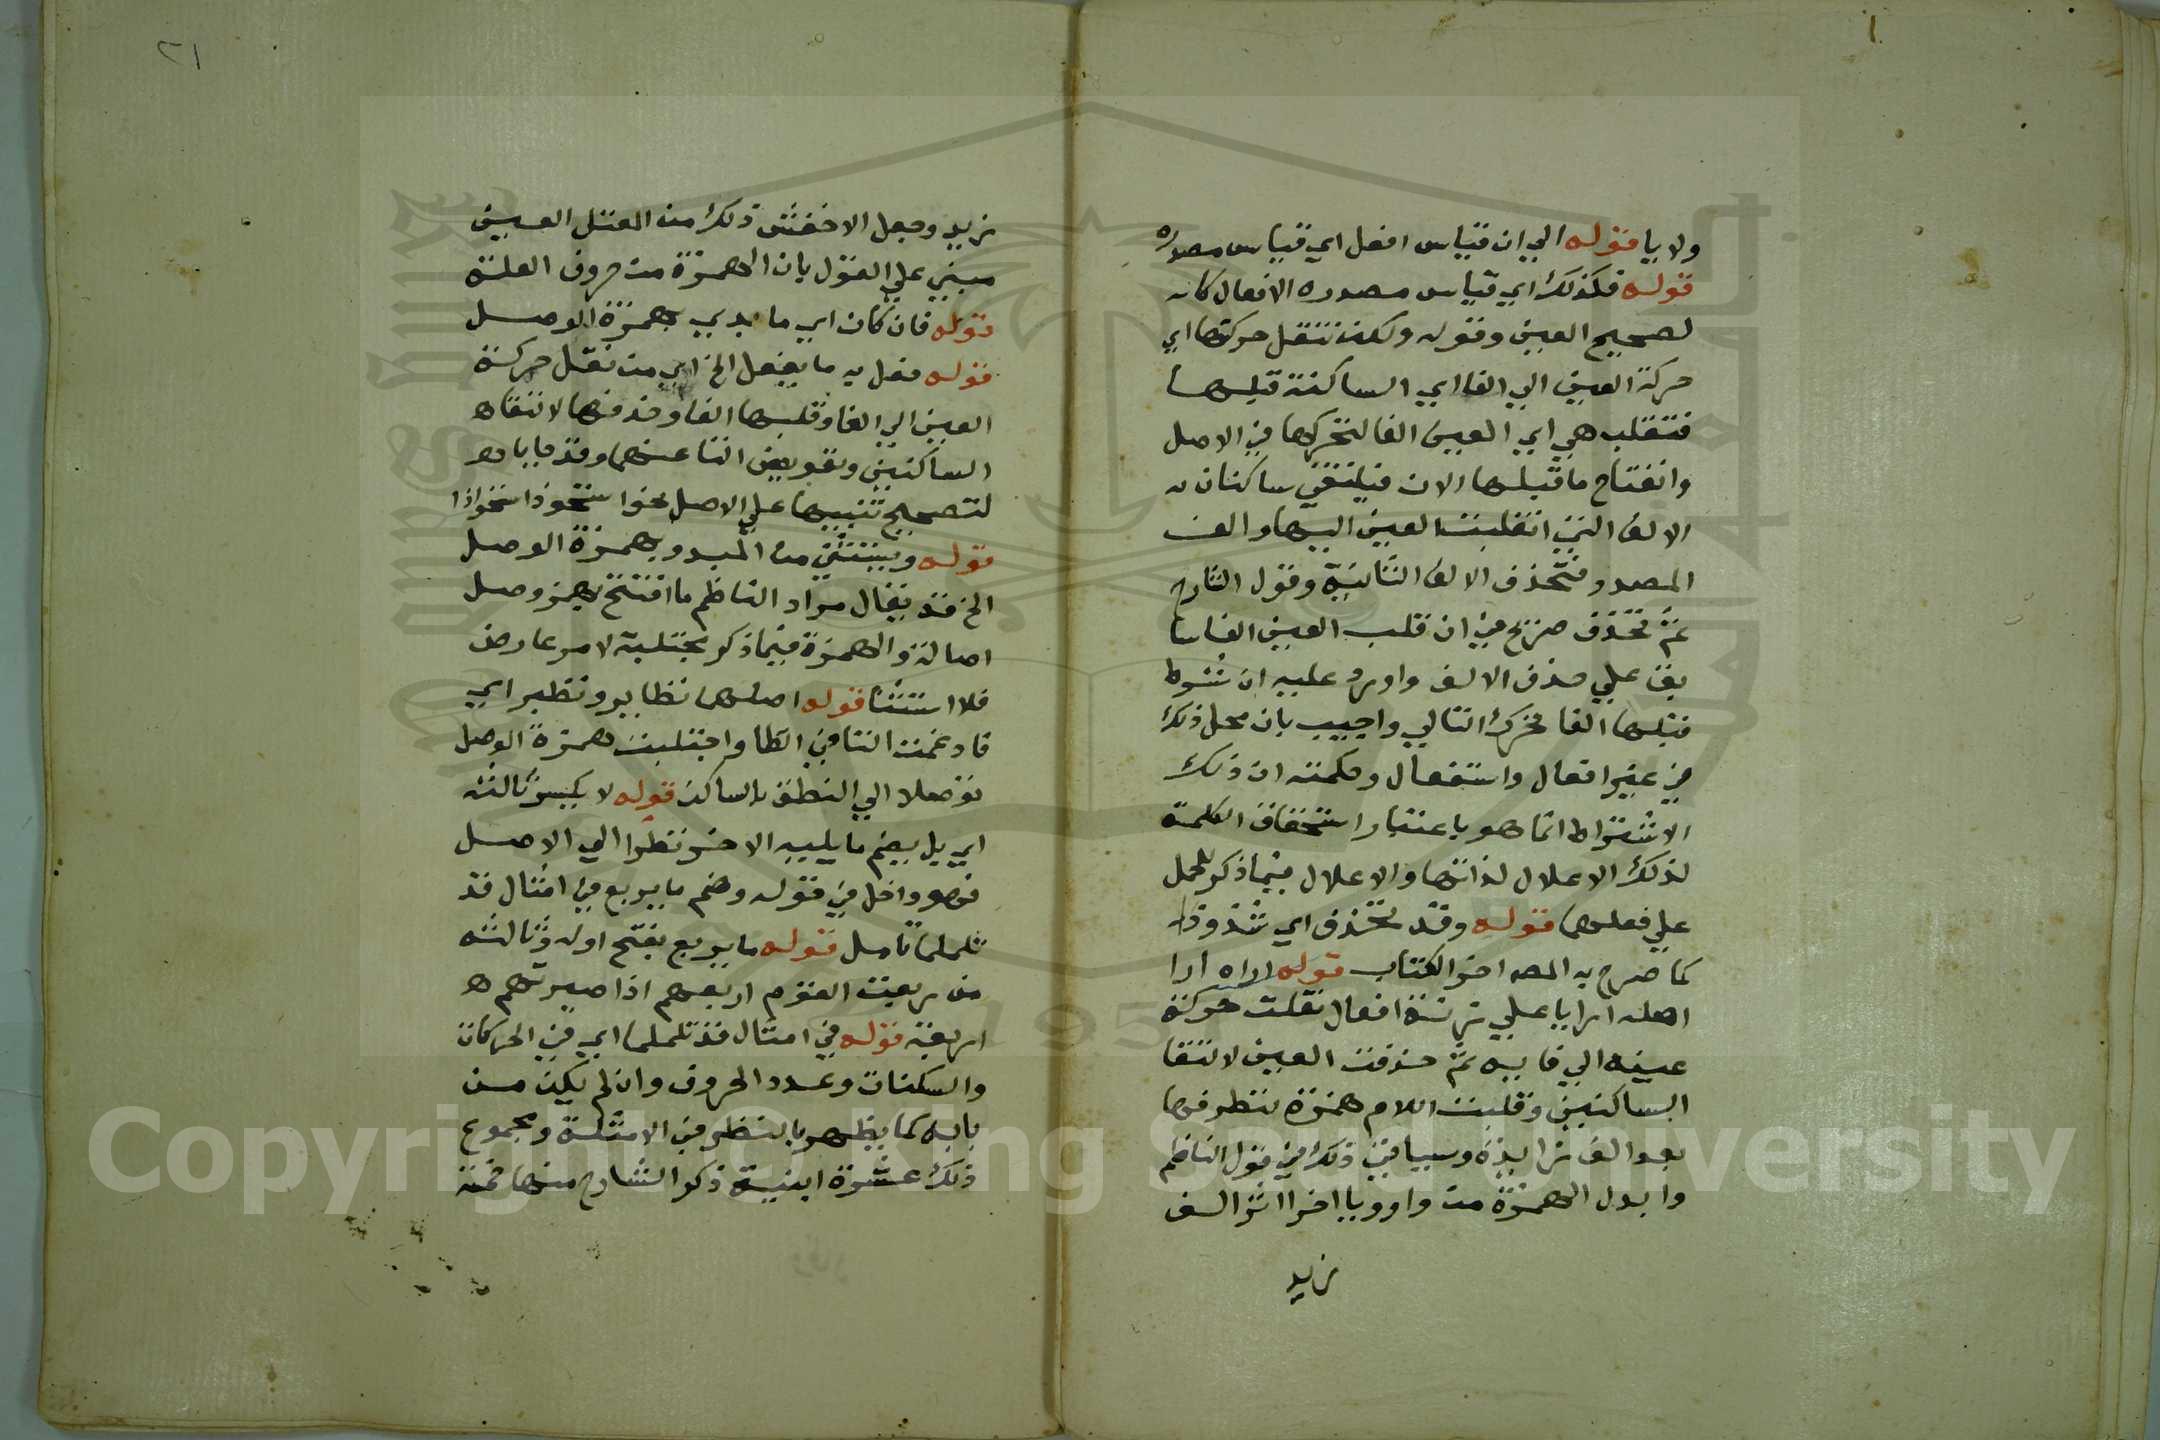 ولا يا قوله الي ان قياس افعل اي قياس مصدره
قوله فكذلك اي قياس مصدره الافعال كان
لصحيح العين وقوله ولكن تنقل حركتها اي
حركة العين الي الفا اي الساكنة قبلها
فتقلب هي اي العين الفا لتحركها في الاصل
وانفتاح ما قبلها الان فيلتقي ساكنان
الالف التي انقلبت العين اليها والف
المصدر وتحذف الالف الثانية وقول الشارح
ثم تحذف صريح في ان قلب العين الفا سا
بق علي حذف الالف واورد عليه ان شرط
قبلها الفا تحرك التالي واجيب بان محل ذلك
في غير افعال واستفعال وحكمته ان ذلك
الاشتراط انما هو باعتبار استحقاق الكلمة
لذلك الاعلال لذاتها والاعلال فيما ذكر للحمل
علي فعلها قوله وقد تحذف اي شذوذا
كما صرح به المصـ اخر الكتاب قوله اراه ارا
اصله ارايا علي زنة افعال نقلت حركة
عينه الي فايه ثم حذفت العين لالتقا
الساكنين وقلبت اللام همزة لتطرفها
بعد الف زايدة وسياتي ذلك في قول الناظم
وابدل الهمزة من واو ويا اخرا اثر الف
زيد
٢١
زيد وجعل الاخفش ذلك من المعتل العين
مبني علي القول بان الهمزة من حروف العلة
قوله فان كان اي ما بدي بهمزة الوصل
قوله فعل به ما يفعل الخ اي من نقل حركة
العين الي الفا وقلبها الفا وحذفها لالتقاء
الساكنين وتعويض التا عنها وقد جا باده
لتصحيح تنبيها علي الاصل نحو استحوذ استحواذا
قوله ويستثني من المبدو بهمزة الوصل
الخ قد يقال مراد الناظم ما افتتح بهمز وصل
اصالة والهمزة فيما ذكر مجتلبة لامر عارض
فلا استثنا قوله اصلها تطاير وتطير اي
فادغمت التا في الطا واجتلبت همزة الوصل
توصلا الي النطق بالساكن قوله لا يكسر ثالثه
اي بل يضم ما يليه الاخر نظرا الي الاصل
فهو داخل في قوله وضم ما يربع في امثال قد
تلملما تامل قوله ما يربع بفتح اوله وثالثه
من ربعت القوم اربعهم اذا صيرتهم
اربعة قوله في امثال قد تلملما اي في الحركات
والسكنات وعدد الحروف وان لم يكن من
بابه كما يظهر بالنظر في الامثلة ومجموع
ذلك عشرة ابنية ذكر الشارح منها خمسة
Copyright © King Saud University
1957